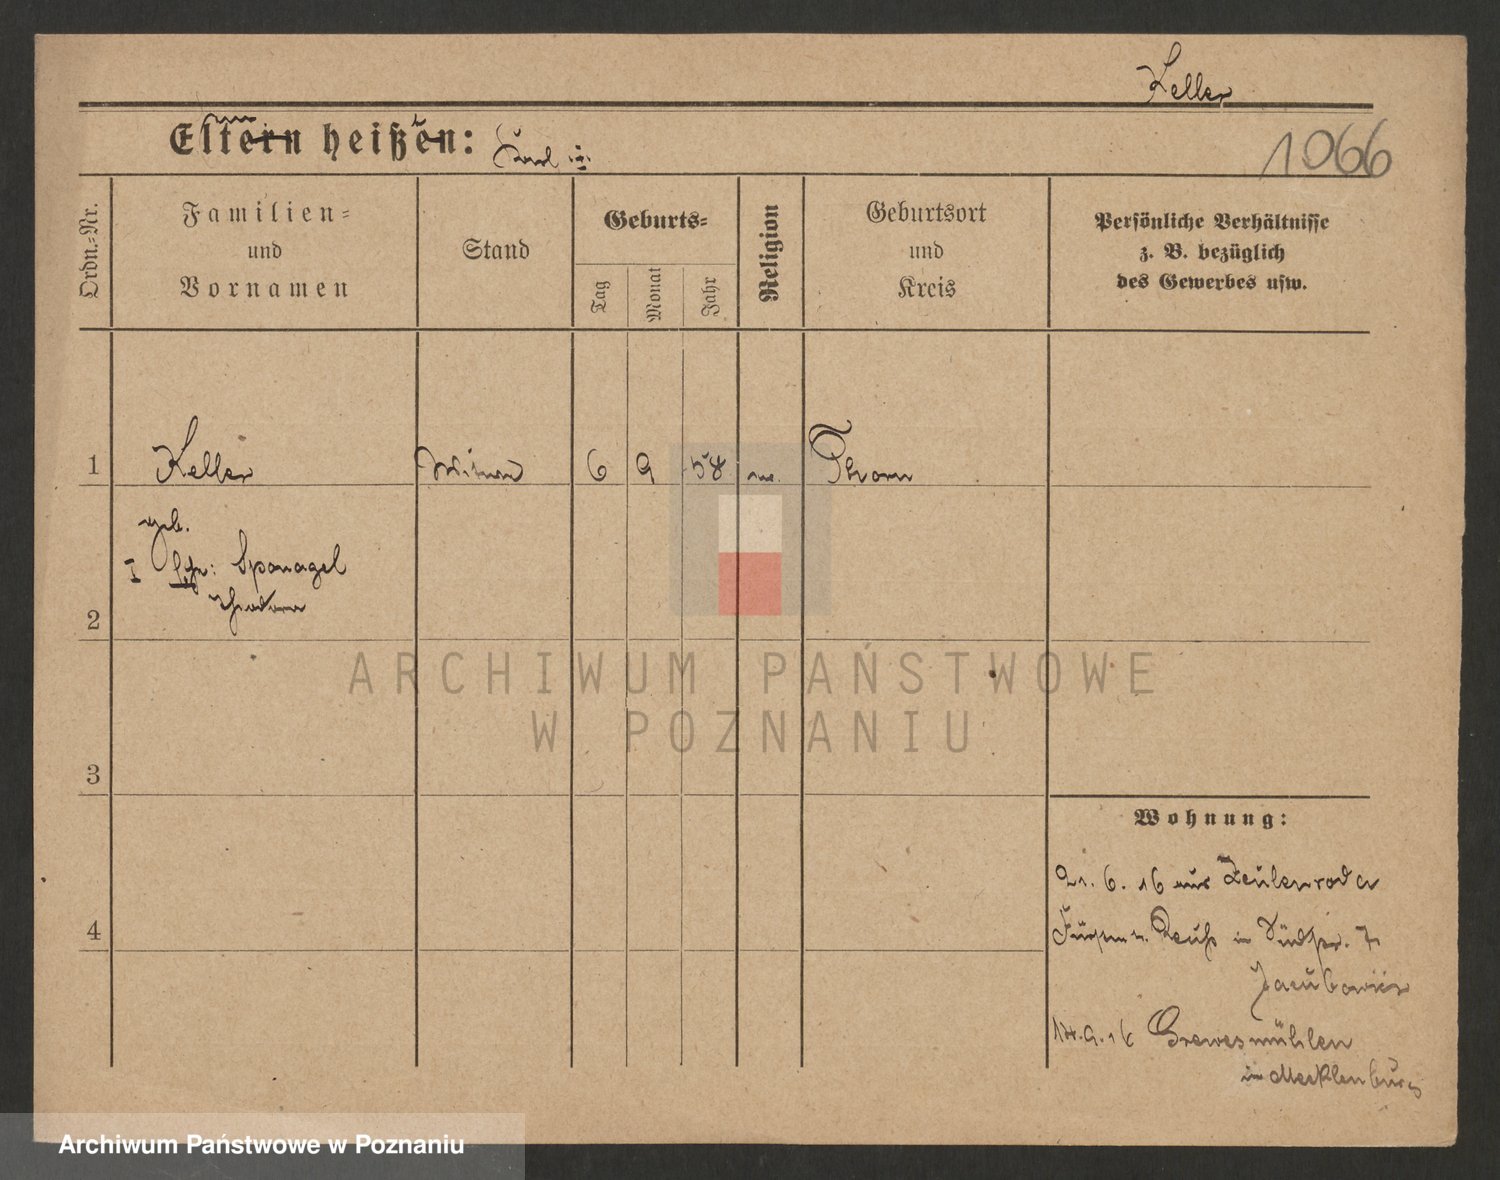 Keller
Eltern heißen:
1066
Ordn.-Nr.
Familien-
und
Vornamen
Stand
Geburts-
Tag
Monat
Jahr
Religion
Geburtsort
und
Kreis
Persönliche Verhältnisse
z. B. bezüglich
des Gewerbes usw.
1 Keller Witwe 6 9 58 Thorn
geb.
I Sponagel
2
3
4
Wohnung:
21. 6. 16 aus Zeulenroda
Reuß in 7
14. 9. 16 Grevesmühlen
in Mecklenburg
ARCHIWUM PAŃSTWOWE
W POZNANIU
Archiwum Państwowe w Poznaniu